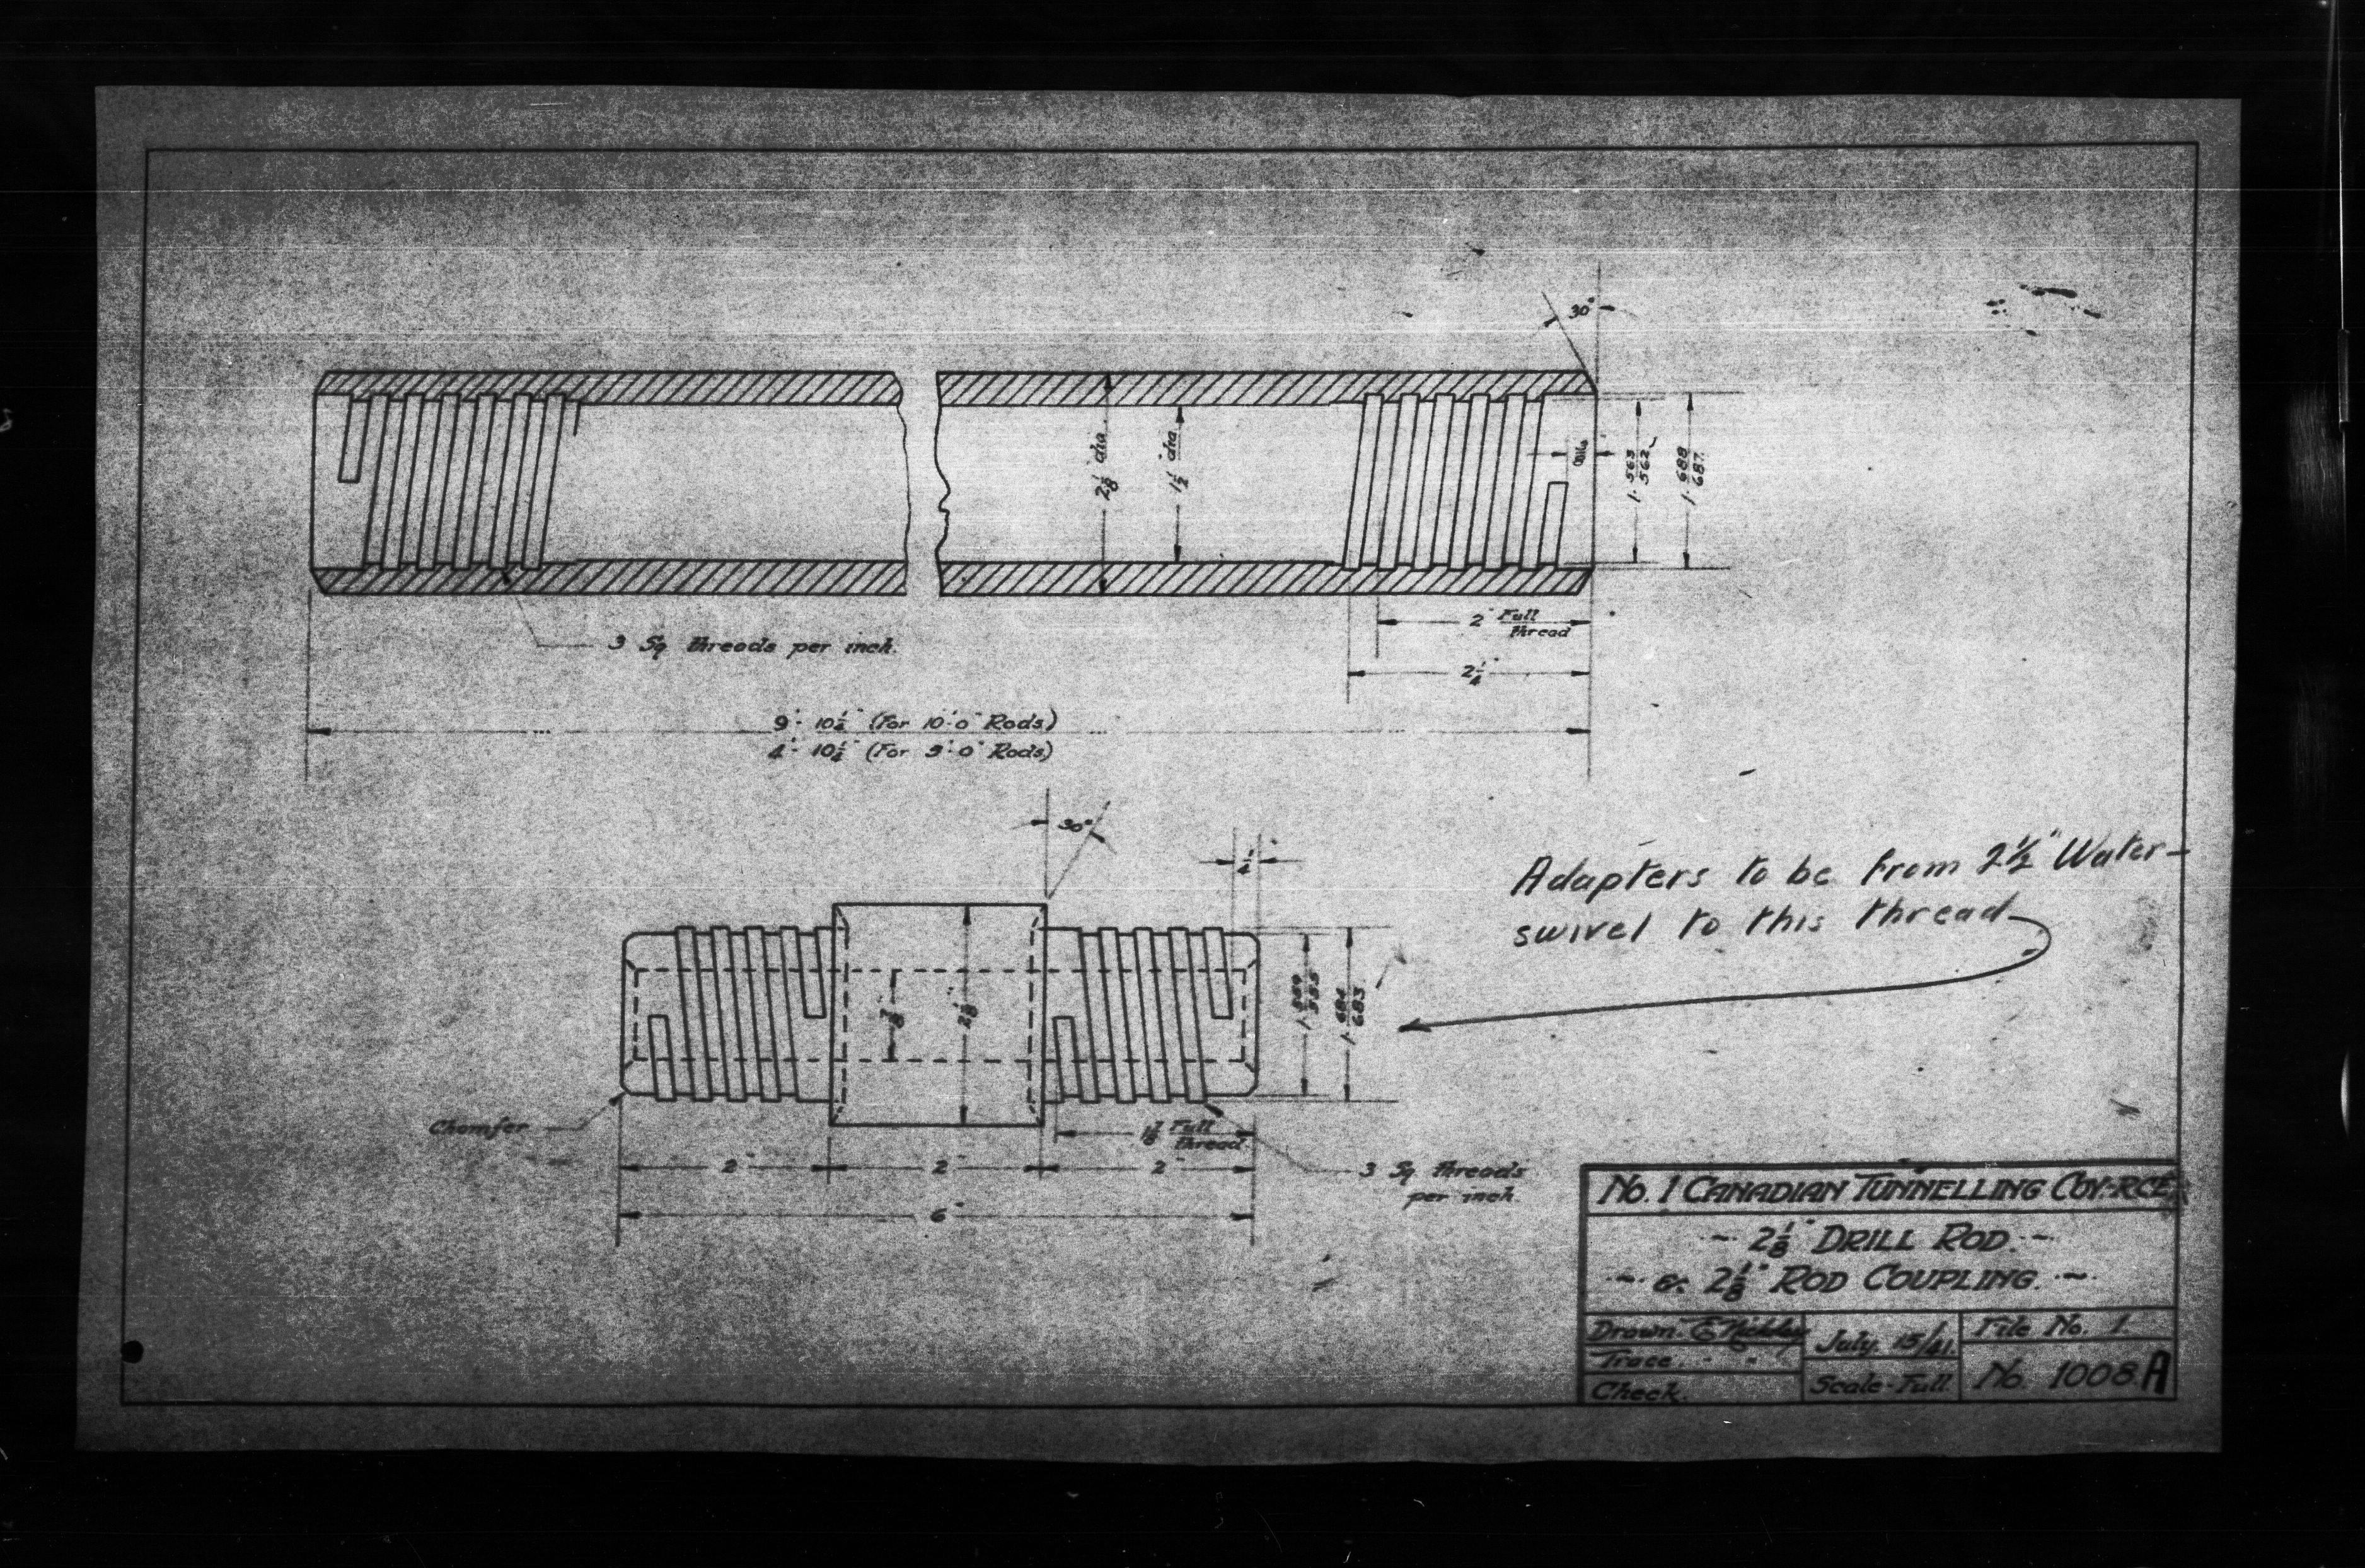 30°
2⅛" dia.
1½" dia
1.563
562
1.688
687
2" Full
thread
2¼"
3 Sq threads per inch.
9'- 10¼" (For 10'-0" Rods)
4'- 10¼" (For 5'-0" Rods)
30°
¼"
Adapters to be from 2½" Water-
swivel to this thread
⅞"
2⅛"
1.684
683
Chamfer
1⅞" Full
thread.
2" 2" 2"
3 Sq threads
per inch.
6"
No. 1 CANADIAN TUNNELLING COY. R.C.E.
~ 2⅛" DRILL ROD. ~
~ &. 2⅛" ROD COUPLING. ~
Drawn. July. 15/41. File No. 1.
Trace. " "
Check. Scale-Full. No. 1008 A